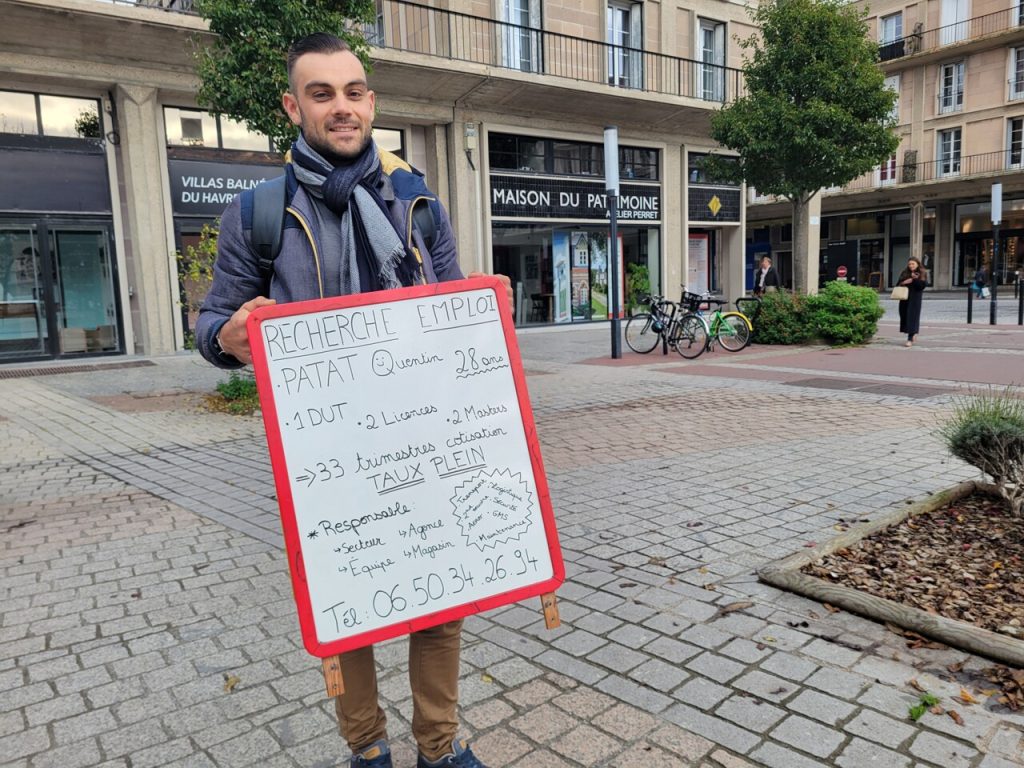 VILLAS BALNÉ
DU HAVRE
MAISON DU PATRIMOINE
ATELIER PERRET
RECHERCHE EMPLOI
• PATAT Quentin 28 ans
• 1 DUT • 2 Licences • 2 Masters
⇒ 33 trimestres cotisation
TAUX PLEIN
* Responsable:
↳ Secteur ↳ Agence
↳ Équipe ↳ Magasin
Transport • Logistique
• Sécurité
• GMS
• Maintenance
Tél: 06.50.34.26.94